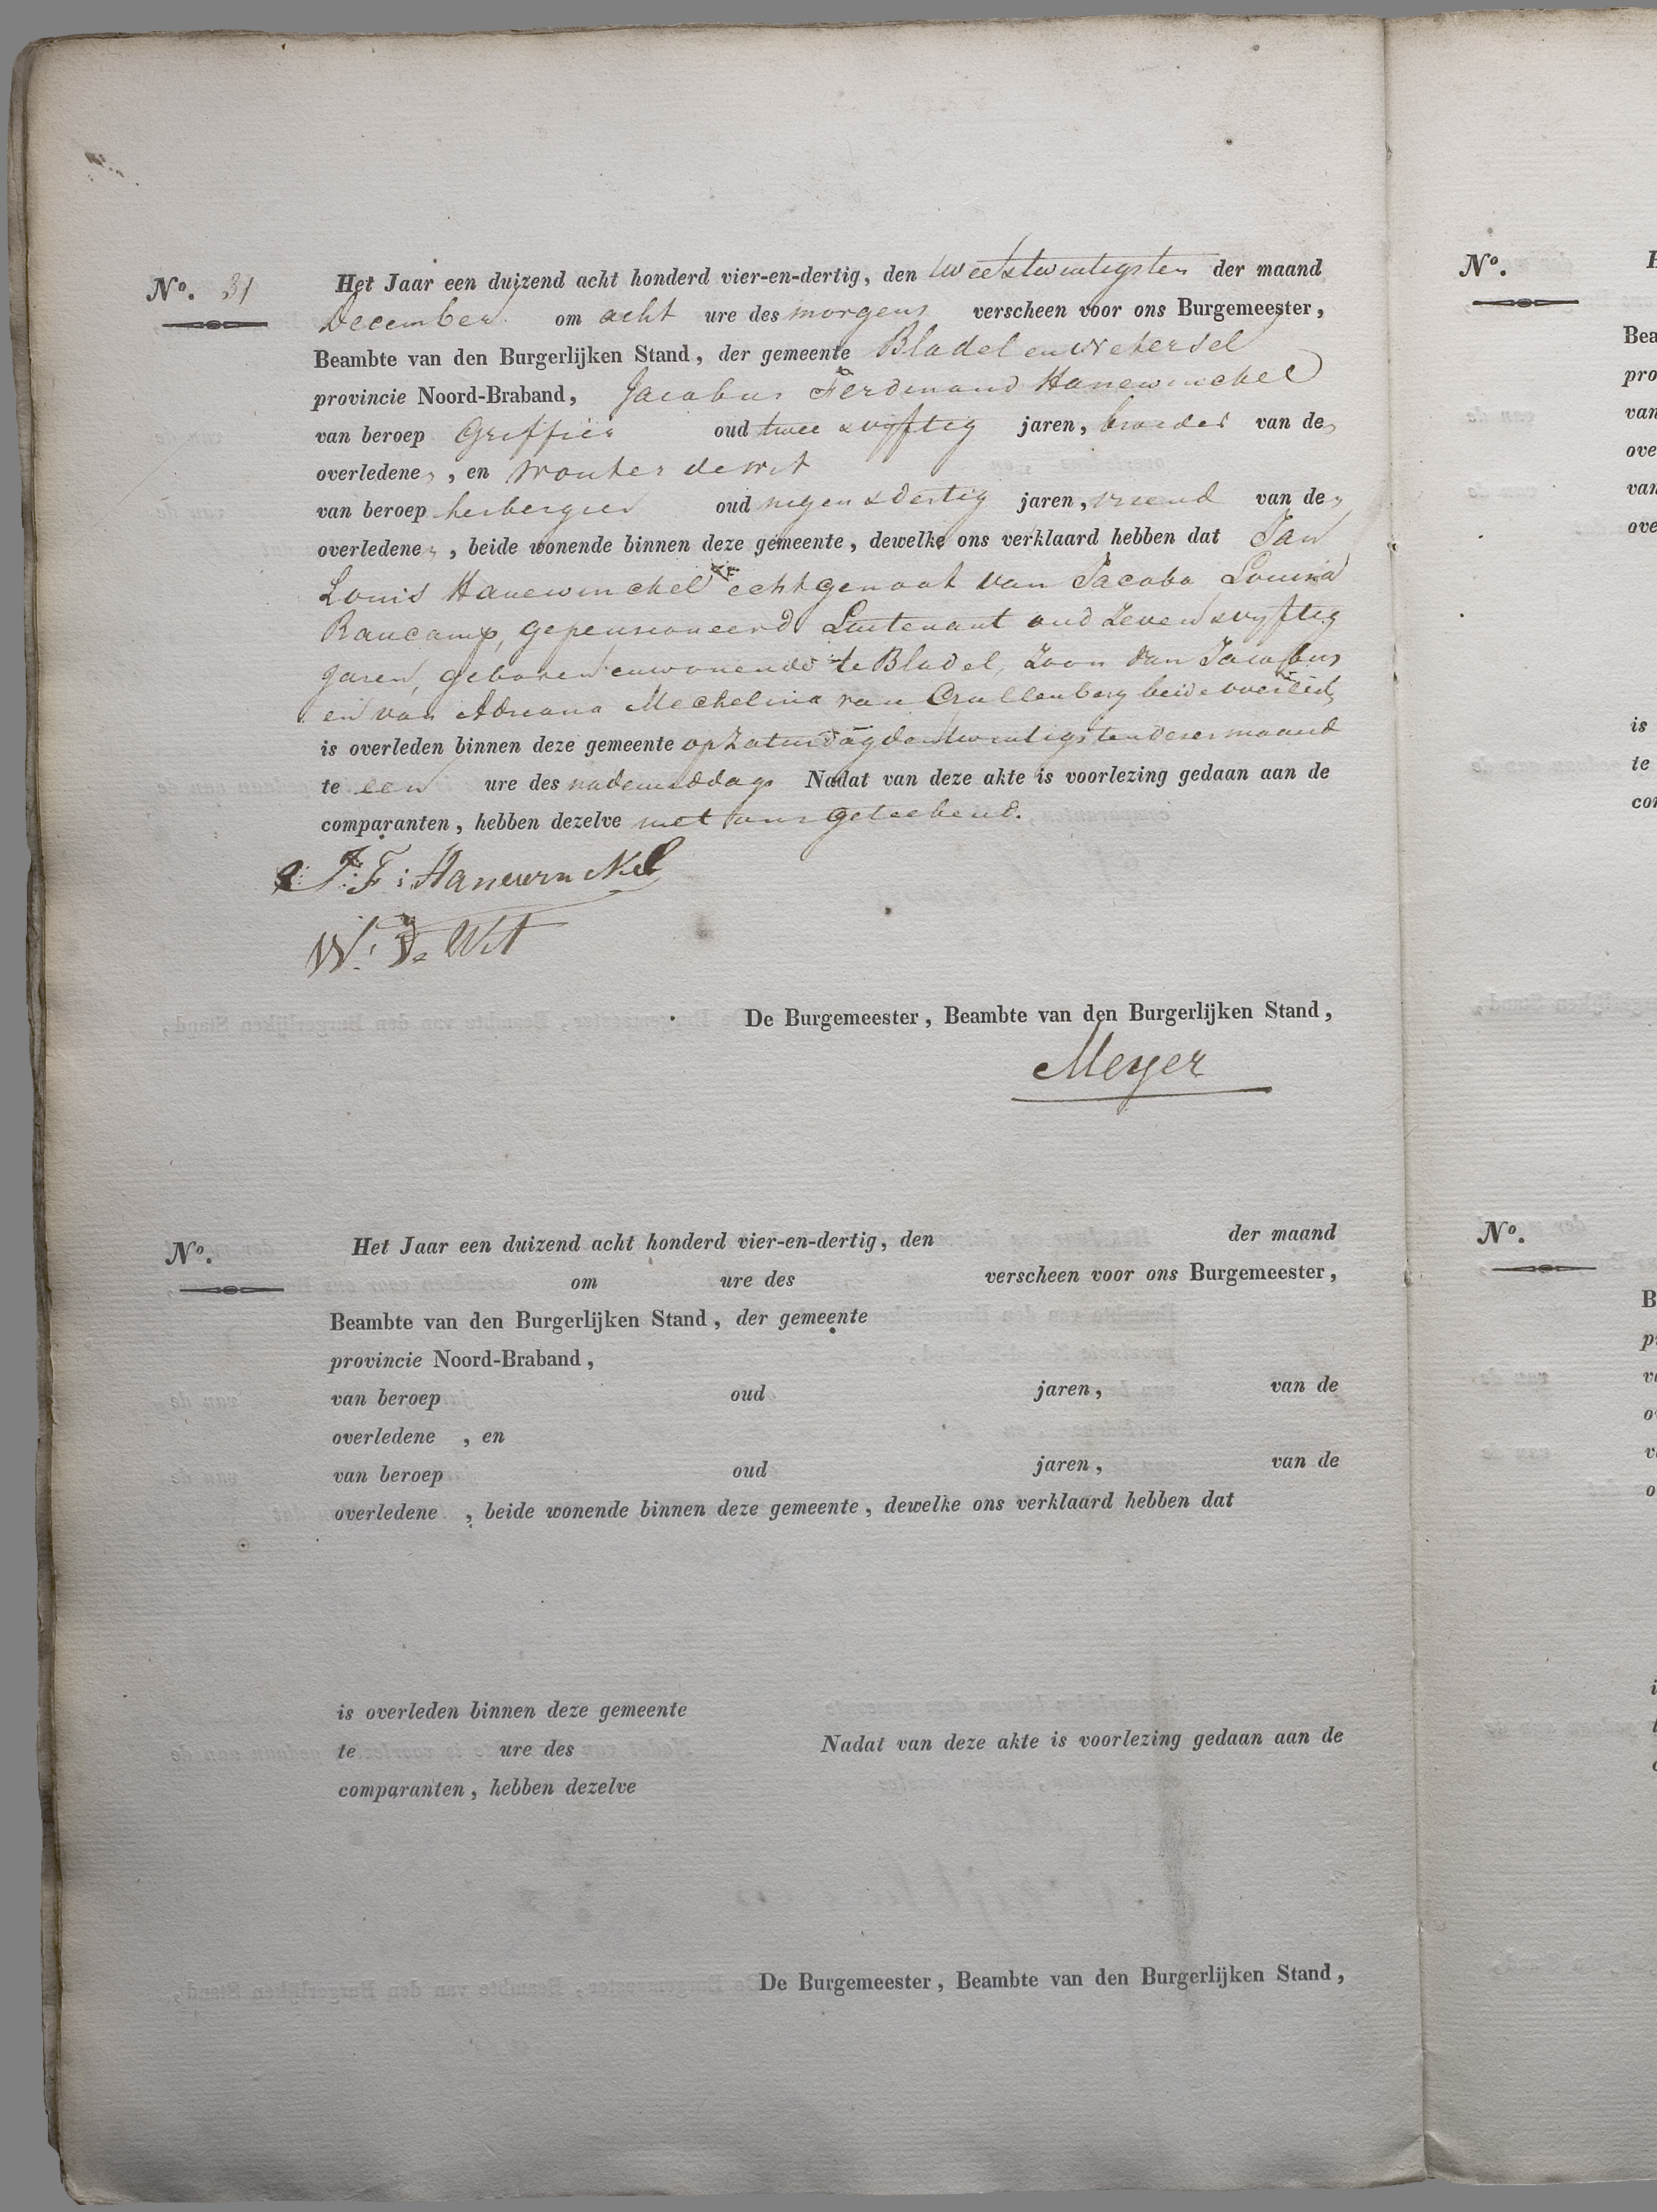 Nº. 31
Het Jaar een duizend acht honderd vier-en-dertig, den twee&twintigsten der maand
December om acht ure des morgens verscheen voor ons Burgemeester,
Beambte van den Burgerlijken Stand, der gemeente Bladel en Netersel
provincie Noord-Braband, Jacobus Ferdinand Hanewinckel
van beroep Griffier oud twee & vyftig jaren, broeder van de
overledene, en Wouter de Wit
van beroep herbergier oud negen & dertig jaren, vriend van de
overledene, beide wonende binnen deze gemeente, dewelke ons verklaard hebben dat Jan
Louis Hanewinckel echtgenoot van Jacoba Louisa
Raucamp, gepensioneerd Luitenant oud zeven & vyftig
jaren, geboren en wonende te Bladel, zoon van Jacobus
en van Adriana Mechelina van beide overled.
is overleden binnen deze gemeente op Zaturdag den twintigsten dezer maand
te een ure des nademiddags Nadat van deze akte is voorlezing gedaan aan de
comparanten, hebben dezelve met ons geteekend.
J: F: Hanewinckel
W: De Wit
De Burgemeester, Beambte van den Burgerlijken Stand,
Meyer
Nº.
Het Jaar een duizend acht honderd vier-en-dertig, den der maand
om ure des verscheen voor ons Burgemeester,
Beambte van den Burgerlijken Stand, der gemeente
provincie Noord-Braband,
van beroep oud jaren, van de
overledene , en
van beroep oud jaren, van de
overledene , beide wonende binnen deze gemeente, dewelke ons verklaard hebben dat
is overleden binnen deze gemeente
te ure des Nadat van deze akte is voorlezing gedaan aan de
comparanten, hebben dezelve
De Burgemeester, Beambte van den Burgerlijken Stand,
Nº.
Nº.